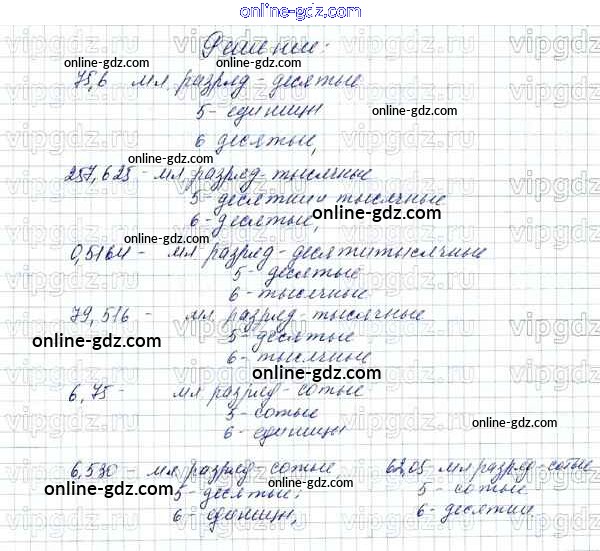 online-gdz.com
Решение:
75,6 мл. разряд - десятые
5 - единицы
online-gdz.com
online-gdz.com
6 десятые,
online-gdz.com
257,625 - мл. разряд - тысячные
5 - десятки и тысячные
6 - десятые,
online-gdz.com
online-gdz.com
0,5164 - мл. разряд - десятитысячные
5 - десятые
6 - тысячные
79,516 - мл. разряд - тысячные
5 - десятые
online-gdz.com
6 - тысячные
online-gdz.com
6,75 - мл. разряд - сотые
5 - сотые
6 - единицы
online-gdz.com
6,530 - мл. разряд - сотые,
62,05 мл разряд - сотые
online-gdz.com
5 - десятые;
5 - сотые
online-gdz.com
6 - единиц,
6 - десятки
online-gdz.com
vipgdz.ru